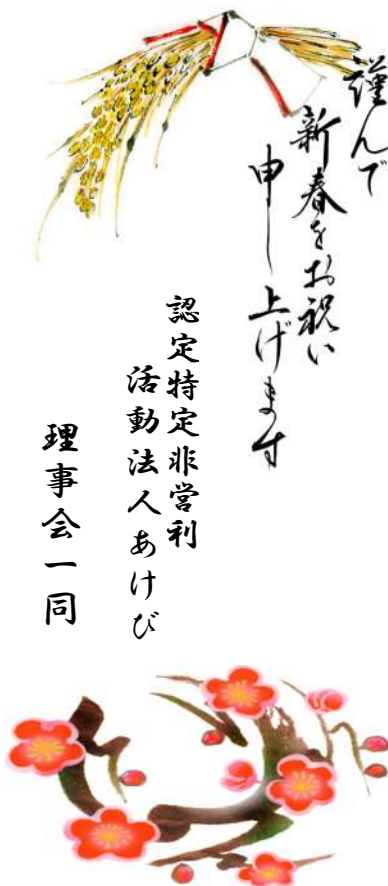 謹んで
新春をお祝い
申し上げます
認定特定非営利
活動法人あけび
理事会一同